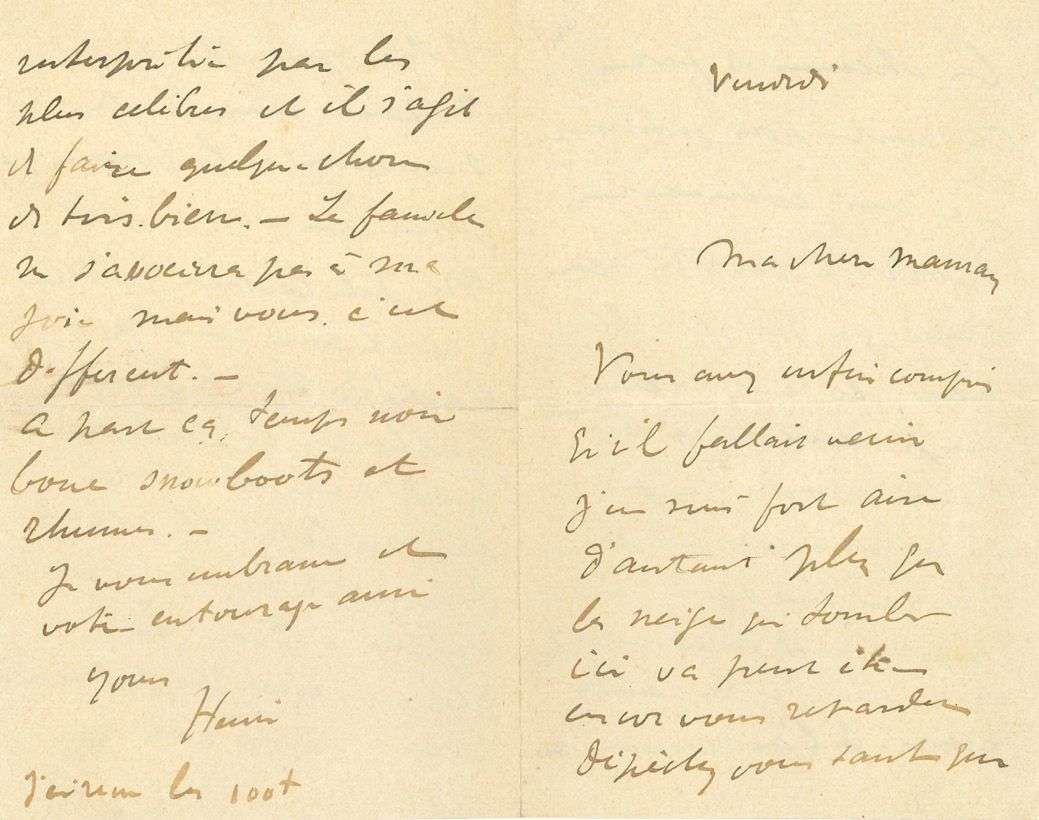 Vendredi
Ma chère maman
Vous avez enfin compris
qu'il fallait venir
j'en suis fort aise
d'autant plus que
la neige qui tombe
ici va peut être
encor vous retarder
Dépêchez vous tant que
interprétée par les
plus célèbres et il s'agit
de faire quelque chose
de très bien. — La famille
ne s'associera pas à ma
joie mais vous c'est
différent. —
A part ça, temps noir
boue snowboots et
rhumes. —
Je vous embrasse et
votre entourage aussi
yours
Henri
J'ai reçu les 100f